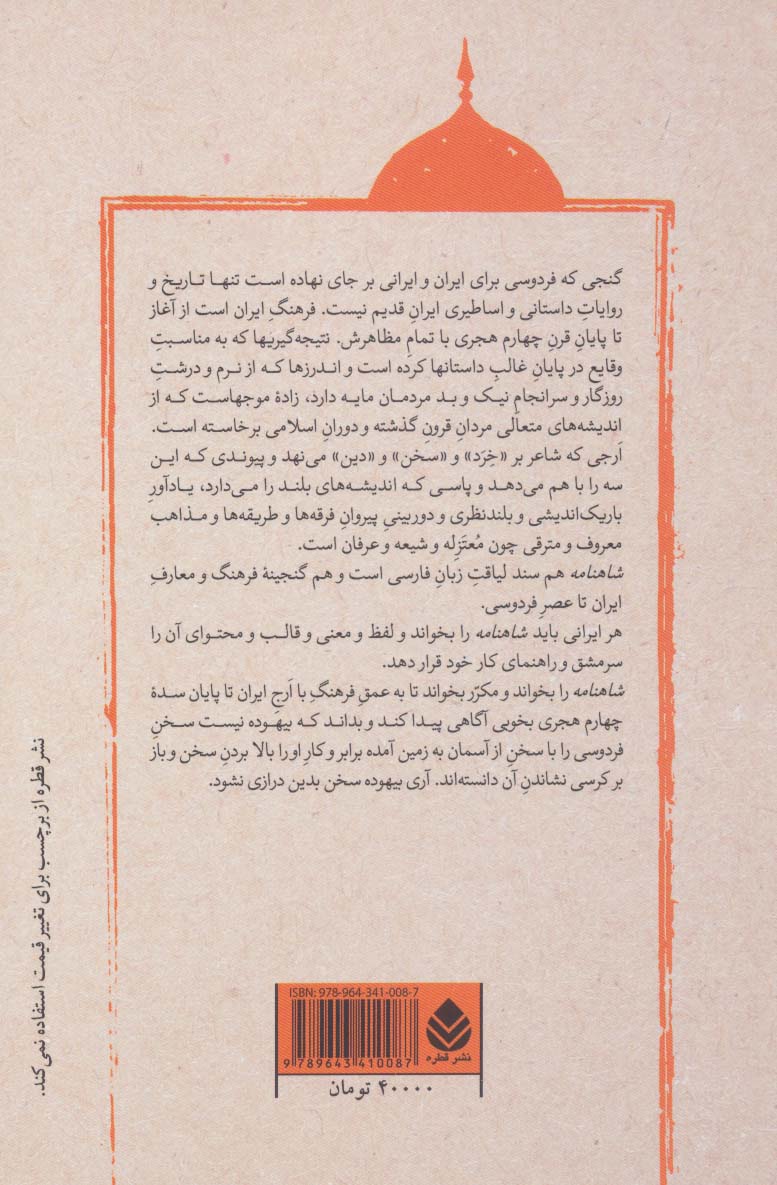 گنجی که فردوسی برای ایران و ایرانی بر جای نهاده است تنها تاریخ و
روایاتِ داستانی و اساطیری ایرانِ قدیم نیست. فرهنگِ ایران است از آغاز
تا پایانِ قرنِ چهارم هجری با تمامِ مظاهرش. نتیجه‌گیریها که به مناسبتِ
وقایع در پایانِ غالبِ داستانها کرده است و اندرزها که از نرم و درشتِ
روزگار و سرانجامِ نیک و بد مردمان مایه دارد، زادهٔ موجهاست که از
اندیشه‌های متعالی مردانِ قرونِ گذشته و دورانِ اسلامی برخاسته است.
اَرجی که شاعر بر «خِرَد» و «سخن» و «دین» می‌نهد و پیوندی که این
سه را با هم می‌دهد و پاسی که اندیشه‌های بلند را می‌دارد، یادآورِ
باریک‌اندیشی و بلندنظری و دوربینیِ پیروانِ فرقه‌ها و طریقه‌ها و مذاهب
معروف و مترقی چون مُعتَزِله و شیعه و عرفان است.
شاهنامه هم سند لیاقتِ زبانِ فارسی است و هم گنجینهٔ فرهنگ و معارفِ
ایران تا عصرِ فردوسی.
هر ایرانی باید شاهنامه را بخواند و لفظ و معنی و قالب و محتوای آن را
سرمشق و راهنمای کار خود قرار دهد.
شاهنامه را بخواند و مکرّر بخواند تا به عمقِ فرهنگِ با اَرجِ ایران تا پایان سدهٔ
چهارم هجری بخوبی آگاهی پیدا کند و بداند که بیهوده نیست سخنِ
فردوسی را با سخنِ از آسمان به زمین آمده برابر و کارِ او را بالا بردنِ سخن و باز
بر کرسی نشاندنِ آن دانسته‌اند. آری بیهوده سخن بدین درازی نشود.
نشر قطره از برچسب برای تغییر قیمت استفاده نمی‌کند.
ISBN: 978-964-341-008-7
9 789643 410087
نشر قطره
۴۰۰۰۰ تومان